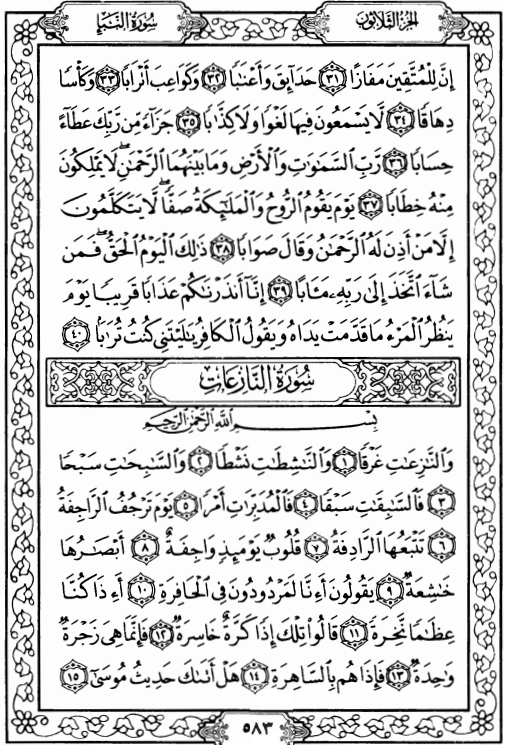 سُورَةُ النَّبَإِ
الجُزْءُ الثَّلَاثُونَ
إِنَّ لِلْمُتَّقِينَ مَفَازًا ٣١ حَدَآئِقَ وَأَعْنَٰبًا ٣٢ وَكَوَاعِبَ أَتْرَابًا ٣٣ وَكَأْسًا
دِهَاقًا ٣٤ لَّا يَسْمَعُونَ فِيهَا لَغْوًا وَلَا كِذَّٰبًا ٣٥ جَزَآءً مِّن رَّبِّكَ عَطَآءً
حِسَابًا ٣٦ رَّبِّ السَّمَٰوَٰتِ وَالْأَرْضِ وَمَا بَيْنَهُمَا الرَّحْمَٰنِ ۖ لَا يَمْلِكُونَ
مِنْهُ خِطَابًا ٣٧ يَوْمَ يَقُومُ الرُّوحُ وَالْمَلَٰٓئِكَةُ صَفًّا ۖ لَّا يَتَكَلَّمُونَ
إِلَّا مَنْ أَذِنَ لَهُ الرَّحْمَٰنُ وَقَالَ صَوَابًا ٣٨ ذَٰلِكَ الْيَوْمُ الْحَقُّ ۖ فَمَن
شَآءَ اتَّخَذَ إِلَىٰ رَبِّهِۦ مَـَٔابًا ٣٩ إِنَّآ أَنذَرْنَٰكُمْ عَذَابًا قَرِيبًا يَوْمَ
يَنظُرُ الْمَرْءُ مَا قَدَّمَتْ يَدَاهُ وَيَقُولُ الْكَافِرُ يَٰلَيْتَنِى كُنتُ تُرَٰبًۢا ٤٠
سُورَةُ النَّازِعَاتِ
بِسْمِ اللَّهِ الرَّحْمَٰنِ الرَّحِيمِ
وَالنَّٰزِعَٰتِ غَرْقًا ١ وَالنَّٰشِطَٰتِ نَشْطًا ٢ وَالسَّٰبِحَٰتِ سَبْحًا
٣ فَالسَّٰبِقَٰتِ سَبْقًا ٤ فَالْمُدَبِّرَٰتِ أَمْرًا ٥ يَوْمَ تَرْجُفُ الرَّاجِفَةُ
٦ تَتْبَعُهَا الرَّادِفَةُ ٧ قُلُوبٌ يَوْمَئِذٍ وَاجِفَةٌ ٨ أَبْصَٰرُهَا
خَٰشِعَةٌ ٩ يَقُولُونَ أَءِنَّا لَمَرْدُودُونَ فِى الْحَافِرَةِ ١٠ أَءِذَا كُنَّا
عِظَٰمًا نَّخِرَةً ١١ قَالُوا تِلْكَ إِذًا كَرَّةٌ خَاسِرَةٌ ١٢ فَإِنَّمَا هِىَ زَجْرَةٌ
وَٰحِدَةٌ ١٣ فَإِذَا هُم بِالسَّاهِرَةِ ١٤ هَلْ أَتَىٰكَ حَدِيثُ مُوسَىٰٓ ١٥
٥٨٣